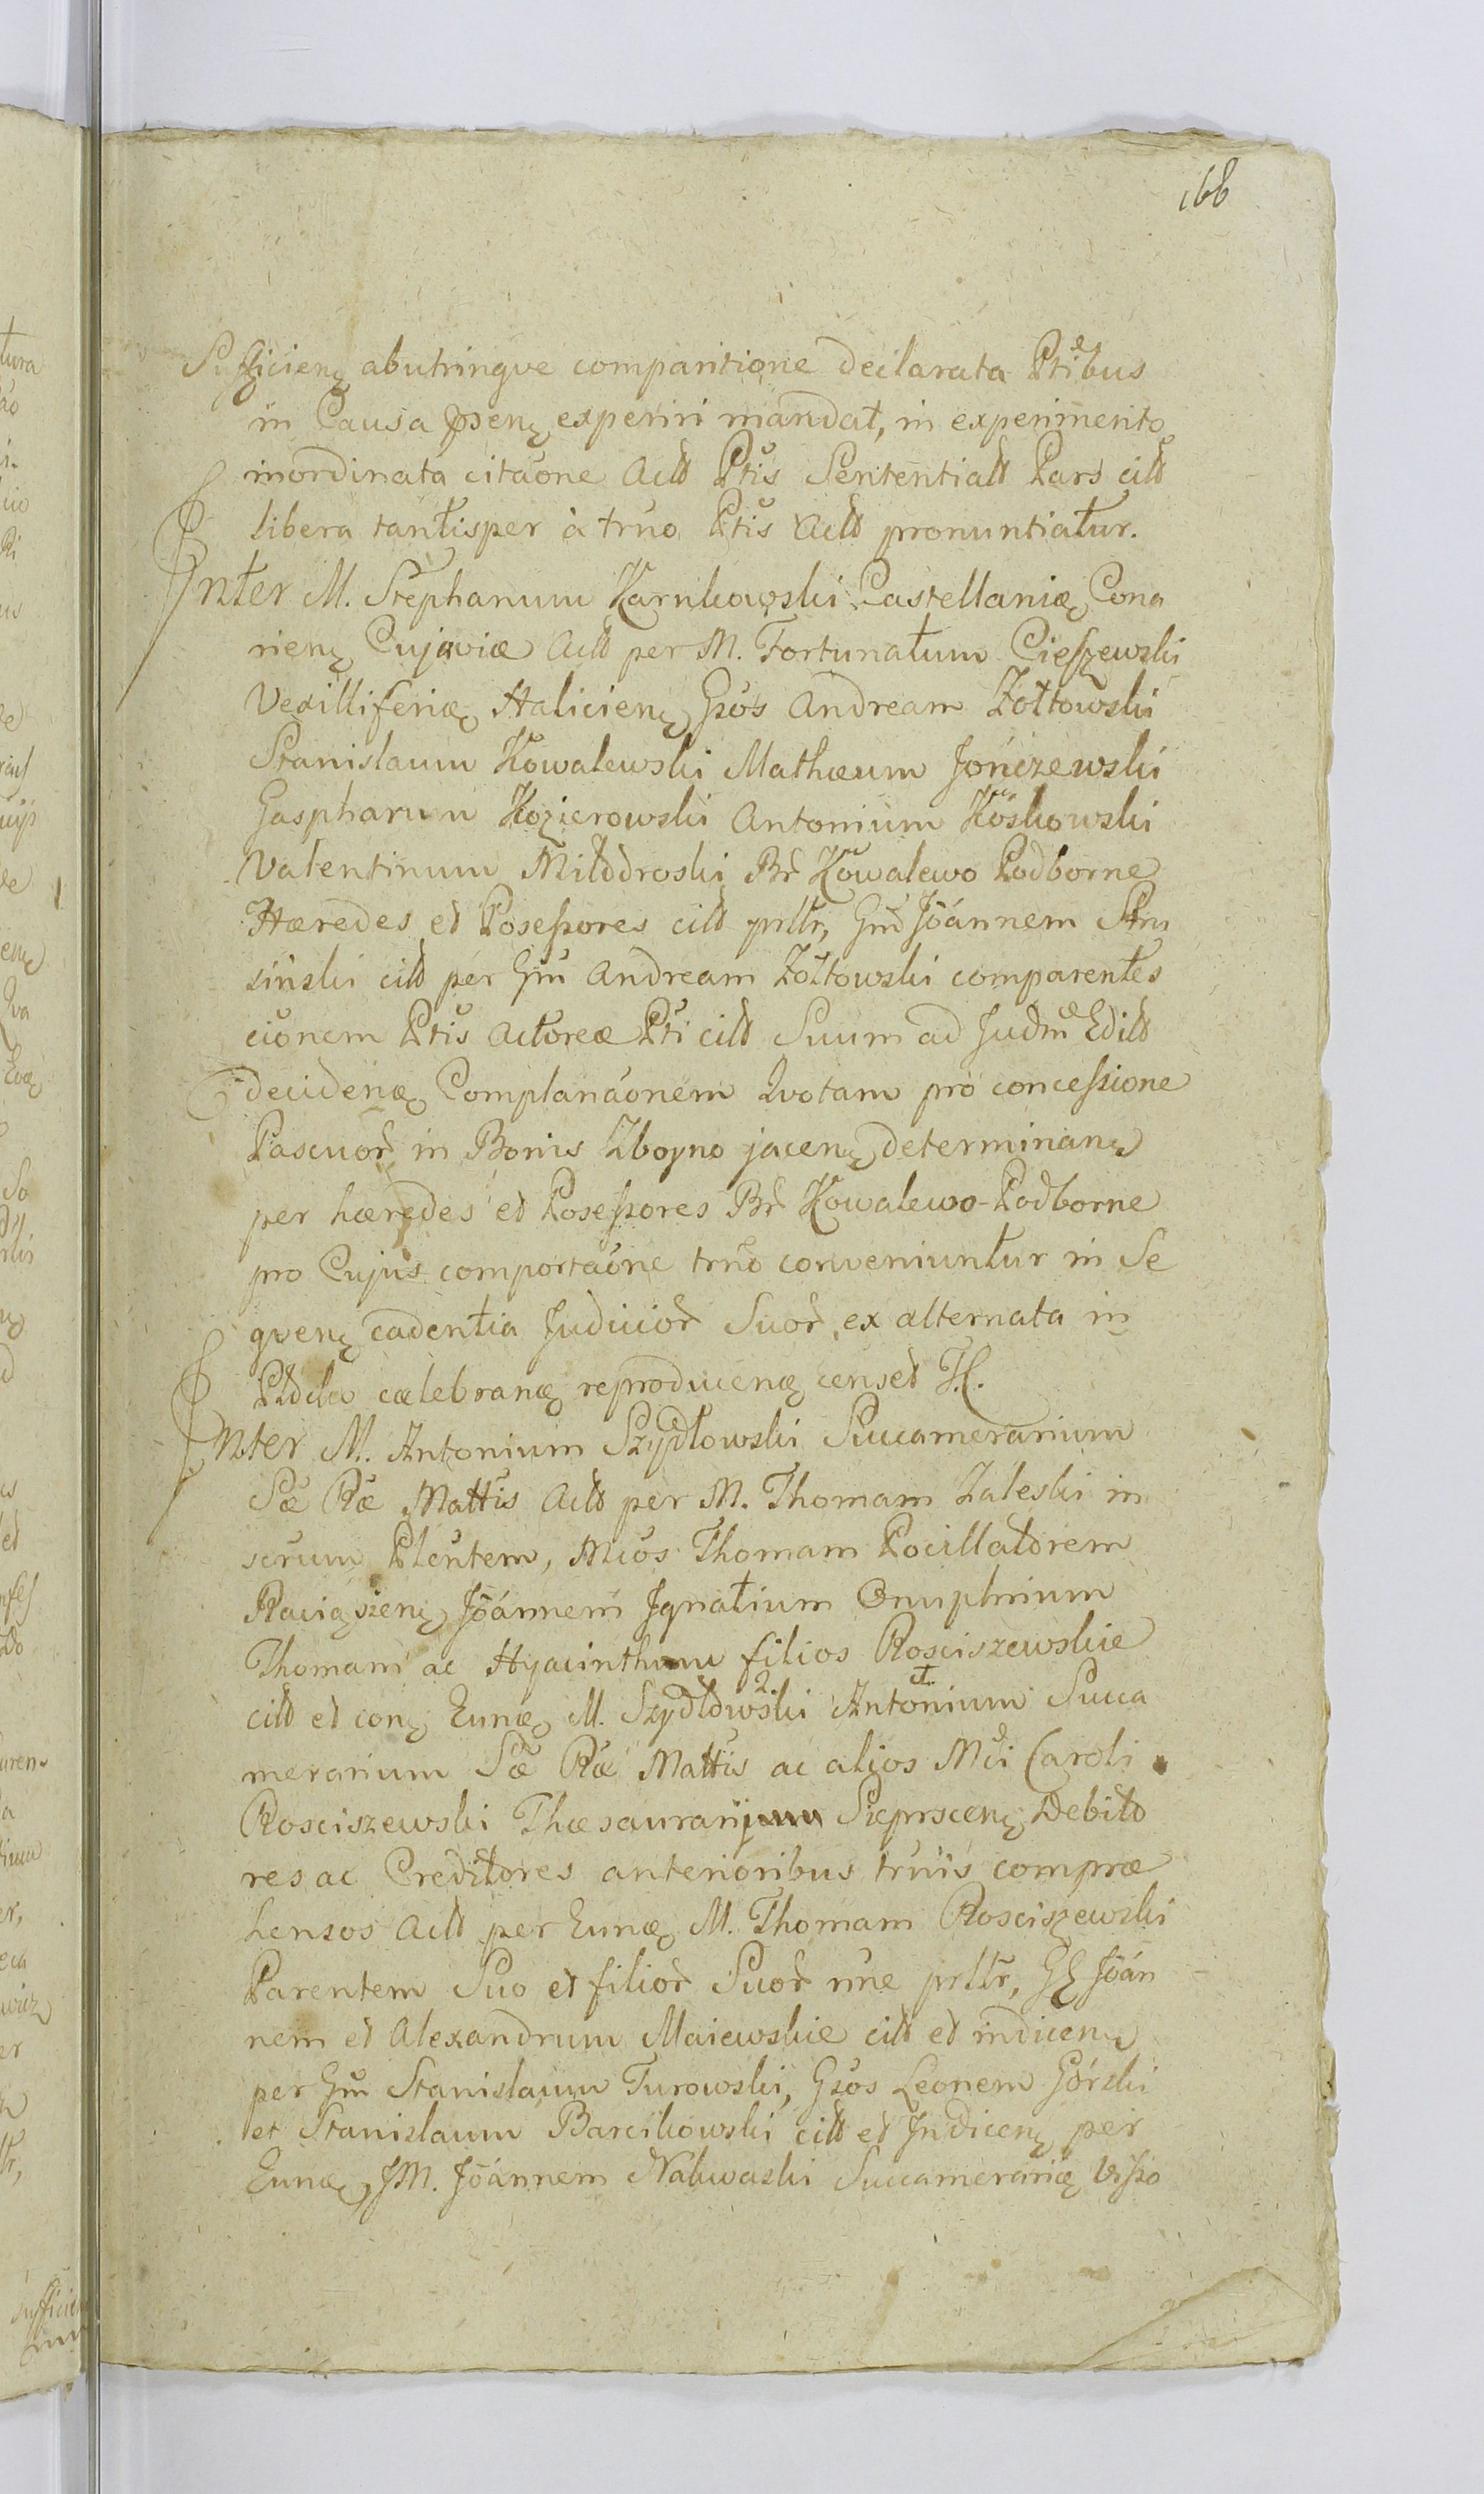 168
Sufficienꝫ abutrinque comparitione declarata Ptibus
in Causa pꝛsenꝫ experiri mandat, in experimento
inordinata citaõne Actt Ptis Sententialt Pars citt
libera tantisper à trno Ptis Actt pronuntiatur.
Inter M. Stephanum Karnkowski Castellaniæ Cona
rienꝫ Cujaviæ Actt per M. Fortunatum Cieszewski
Vexilliferiæ Halicienꝫ Gsos Andream Zołtowski
Stanislaum Kowalewski Mathæum Jończewski
Gaspharum Kozierowski Antonium Koskowski
Valentinum Miłodroski Br Kowalewo Podborne
Hæredes et Posessores citt prltr, Gnd Joánnem Stru
siński citt per Gm Andream Zołtowski comparentes
cionem Ptis Actoreæ Pti citt Suum ad Judm Edilt
decidenꝫ Complanaõnem Qvotam pro concessione
Pascuor in Bonis Zboyno jacenꝫ determinanꝫ
per hæredes et Posessores Br Kowalewo-Podborne
pro Cujus comportaõne trno conveniuntur in Se
qvenꝫ cadentia Judicior Suor ex alternata in
celebranꝫ reproducenꝫ censet H.
Inter M. Antonium Szydłowski Succamerarium
Sæ Ræ Mattis Actt per M. Thomam Zaleski in
scrum Plentem, Mcos Thomam Pocillatorem
Raciązienꝫ Joánnem Ignatium Onuphrium
Thomam ac Hyacinthum filios Rosciszewskie
citt et conꝫ Eunꝫ M. Szydłowski Antonium Succa
merarium Sæ Ræ Mattis ac alios Mci Caroli
Rosciszewski Thæsaurarij Sieprscenꝫ Debito
res ac Creditores anterioribus trnis compræ
hensos Actt per Eunꝫ M. Thomam Rosciszewski
Parentem Suo et filior Suor nne prltr, GG Joán
nem et Alexandrum Maiewskie citt et indicenꝫ
per Gm Stanislaum Turowski, Gsos Leonem Górski
et Stanislaum Barcikowski citt et Indicenꝫ per
Eunꝫ JM. Joánnem Nakwaski Succamerariæ Visso